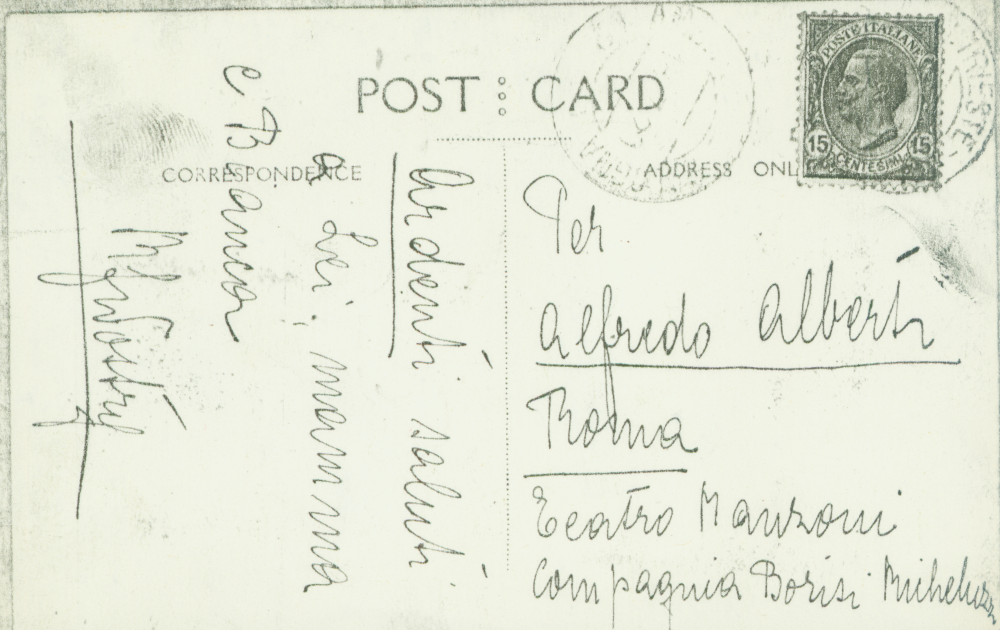 POST CARD
CORRESPONDENCE
ADDRESS ONL
POSTE ITALIANE
15 15
CENTESIMI
TRIESTE
Ardenti saluti
a Lei, mamma
e Bianca
Per
Alfredo Alberti
Roma
Teatro Manzoni
Compagnia Borisi Micheluzzi